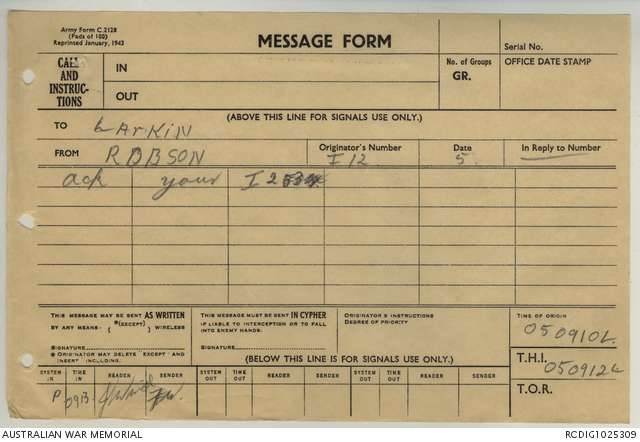 Army Form C 2128
(Pads of 100)
Reprinted January, 1943
MESSAGE FORM
Serial No.
CALL AND INSTRUC-TIONS
IN
OUT
No. of Groups
GR.
OFFICE DATE STAMP
(ABOVE THIS LINE FOR SIGNALS USE ONLY.)
TO LArKiN
FROM ROBSON
Originator's Number
I 12
Date
5.
In Reply to Number
ack your I2
THIS MESSAGE MAY BE SENT AS WRITTEN
BY ANY MEANS- { *(EXCEPT) } WIRELESS
SIGNATURE
* ORIGINATOR MAY DELETE EXCEPT AND INSERT INCLUDING.
THIS MESSAGE MUST BE SENT IN CYPHER
IF LIABLE TO INTERCEPTION OR TO FALL INTO ENEMY HANDS.
SIGNATURE
ORIGINATOR'S INSTRUCTIONS
DEGREE OF PRIORITY
TIME OF ORIGIN
050910L
T.H.I.
050912L
T.O.R.
(BELOW THIS LINE IS FOR SIGNALS USE ONLY.)
SYSTEM IN TIME IN READER SENDER SYSTEM OUT TIME OUT READER SENDER SYSTEM OUT TIME OUT READER SENDER
P 0913
AUSTRALIAN WAR MEMORIAL
RCDIG1025309